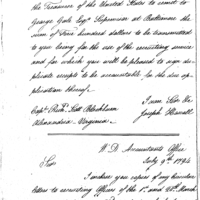 the Treasurer of the United States to remit to
George Gale Esqr Supervisor at Baltimore the
sum of Five hundred dollars to be transmitted
to you being for the use of the recruiting service
and for which you will be pleased to sign du-
plicate receipts to be accountable for the due ap-
plication thereof.
I am Sir &c
Joseph Howell
Capt. Richd. Scott Blackburn
Alexandria Virginia
W. D. Accountants Office
July 9th 1794
Sir
I enclose you copies of my
letters to recruiting Officers of the 1st and 28th March